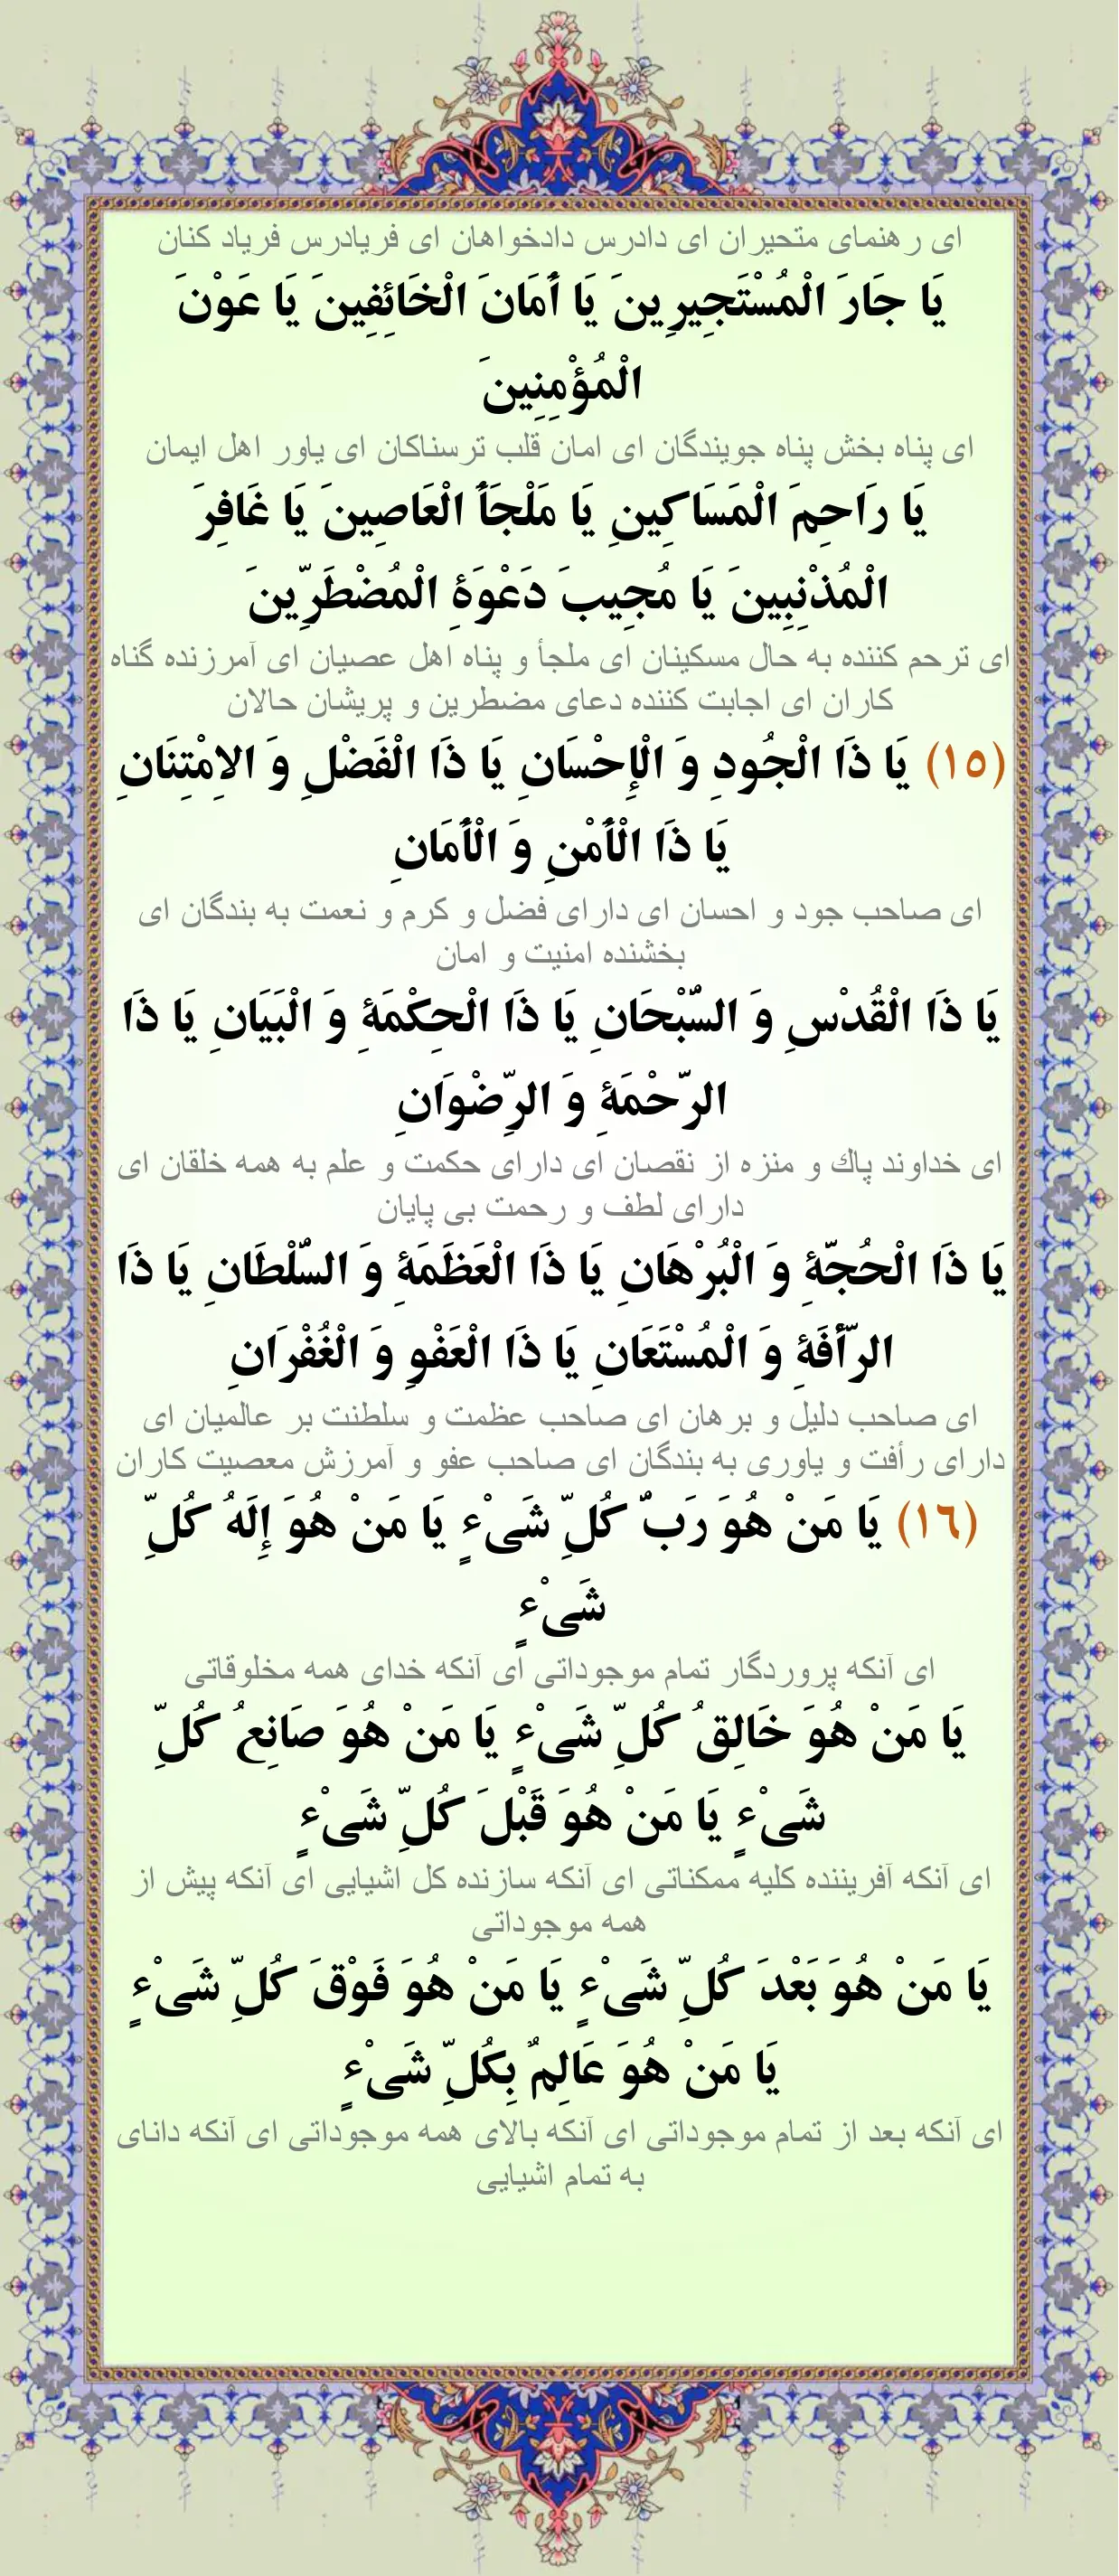 ای رهنمای متحیران ای دادرس دادخواهان ای فریادرس فریاد کنان
یَا جَارَ الْمُسْتَجِیرِینَ یَا أَمَانَ الْخَائِفِینَ یَا عَوْنَ
الْمُؤْمِنِینَ
ای پناه بخش پناه جویندگان ای امان قلب ترسناکان ای یاور اهل ایمان
یَا رَاحِمَ الْمَسَاکِینِ یَا مَلْجَأَ الْعَاصِینَ یَا غَافِرَ
الْمُذْنِبِینَ یَا مُجِیبَ دَعْوَةِ الْمُضْطَرِّینَ
ای ترحم کننده به حال مسکینان ای ملجأ و پناه اهل عصیان ای آمرزنده گناه
کاران ای اجابت کننده دعای مضطرین و پریشان حالان
(١٥) یَا ذَا الْجُودِ وَ الْإِحْسَانِ یَا ذَا الْفَضْلِ وَ الاِمْتِنَانِ
یَا ذَا الْأَمْنِ وَ الْأَمَانِ
ای صاحب جود و احسان ای دارای فضل و کرم و نعمت به بندگان ای
بخشنده امنیت و امان
یَا ذَا الْقُدْسِ وَ السُّبْحَانِ یَا ذَا الْحِکْمَةِ وَ الْبَیَانِ یَا ذَا
الرَّحْمَةِ وَ الرِّضْوَانِ
ای خداوند پاك و منزه از نقصان ای دارای حکمت و علم به همه خلقان ای
دارای لطف و رحمت بی پایان
یَا ذَا الْحُجَّةِ وَ الْبُرْهَانِ یَا ذَا الْعَظَمَةِ وَ السُّلْطَانِ یَا ذَا
الرَّأْفَةِ وَ الْمُسْتَعَانِ یَا ذَا الْعَفْوِ وَ الْغُفْرَانِ
ای صاحب دلیل و برهان ای صاحب عظمت و سلطنت بر عالمیان ای
دارای رأفت و یاوری به بندگان ای صاحب عفو و آمرزش معصیت کاران
(١٦) یَا مَنْ هُوَ رَبُّ کُلِّ شَیْءٍ یَا مَنْ هُوَ إِلَهُ کُلِّ
شَیْءٍ
ای آنکه پروردگار تمام موجوداتی ای آنکه خدای همه مخلوقاتی
یَا مَنْ هُوَ خَالِقُ کُلِّ شَیْءٍ یَا مَنْ هُوَ صَانِعُ کُلِّ
شَیْءٍ یَا مَنْ هُوَ قَبْلَ کُلِّ شَیْءٍ
ای آنکه آفریننده کلیه ممکناتی ای آنکه سازنده کل اشیایی ای آنکه پیش از
همه موجوداتی
یَا مَنْ هُوَ بَعْدَ کُلِّ شَیْءٍ یَا مَنْ هُوَ فَوْقَ کُلِّ شَیْءٍ
یَا مَنْ هُوَ عَالِمٌ بِکُلِّ شَیْءٍ
ای آنکه بعد از تمام موجوداتی ای آنکه بالای همه موجوداتی ای آنکه دانای
به تمام اشیایی